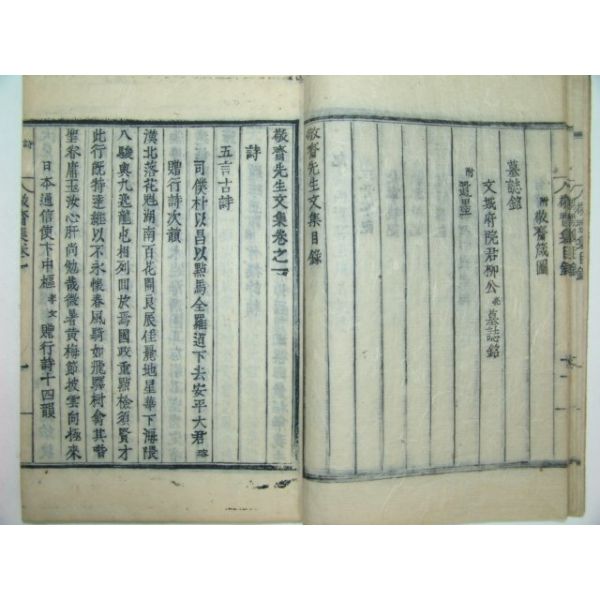 附敬齋箴圖
墓誌銘
文城府院君柳公亮墓誌銘
附
敬齋先生文集目錄
敬齋先生文集卷之一
詩
五言古詩
司僕朴以昌以點馬全羅道下去安平大君瑢
贈行詩次韻
漢北落花飛湖南百花開良辰佳麗地星華下海隈
八駿與九逸龍也相列回於焉國政重點檢須賢才
此行旣特達纏以不永懷春風騎如飛驛村禽其喈
聖眷庸玉汝心肝尚勉哉微暑黃梅節披雲向極來
日本通信使卞中樞孝文贈行詩十四韻
敬齋集卷一